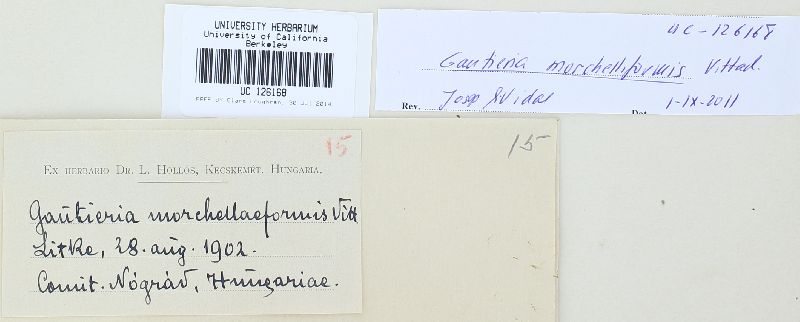 UNIVERSITY HERBARIUM
University of California
Berkeley
UC 126168
UC-126168
Gautieria morchelliformis Vittad.
Rev. Josep Vidal Dat. 1-IX-2011
15
15
EX HERBARIO DR. L. HOLLOS, KECSKEMÉT, HUNGARIA.
Gautieria morchellaeformis Vitt
Litke, 28. aug. 1902.
Comit. Nógrád, Hungariae.